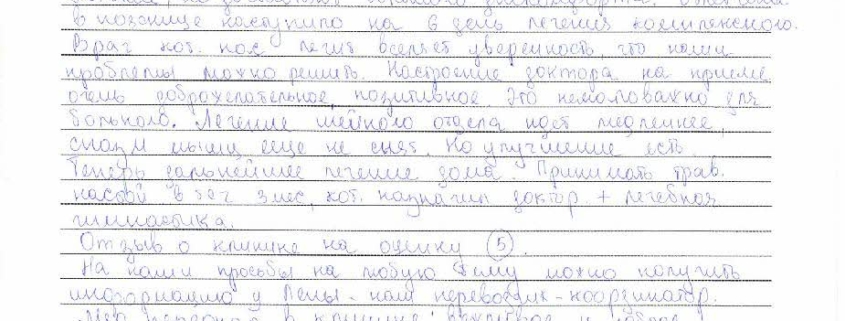 в пояснице наступило на 6 день лечения комплексного.
Врач кот. нас лечит вселяет уверенность, что наши
проблемы можно решить. Настроение доктора на приеме
очень доброжелательное, позитивное. Это немоловажно для
больного. Лечение шейного отдела идет медленнее,
спазм мышц еще не снят. Но улучшение есть
Теперь дальнейшее лечение дома. Принимать трав.
настой в теч 3 мес, кот. назначил доктор + лечебная
гимнастика.
Отзыв о клинике на оценку 5.
На наши просьбы на любую тему можно получить
информацию у Лены - наш переводчик-координатор.
в клинике